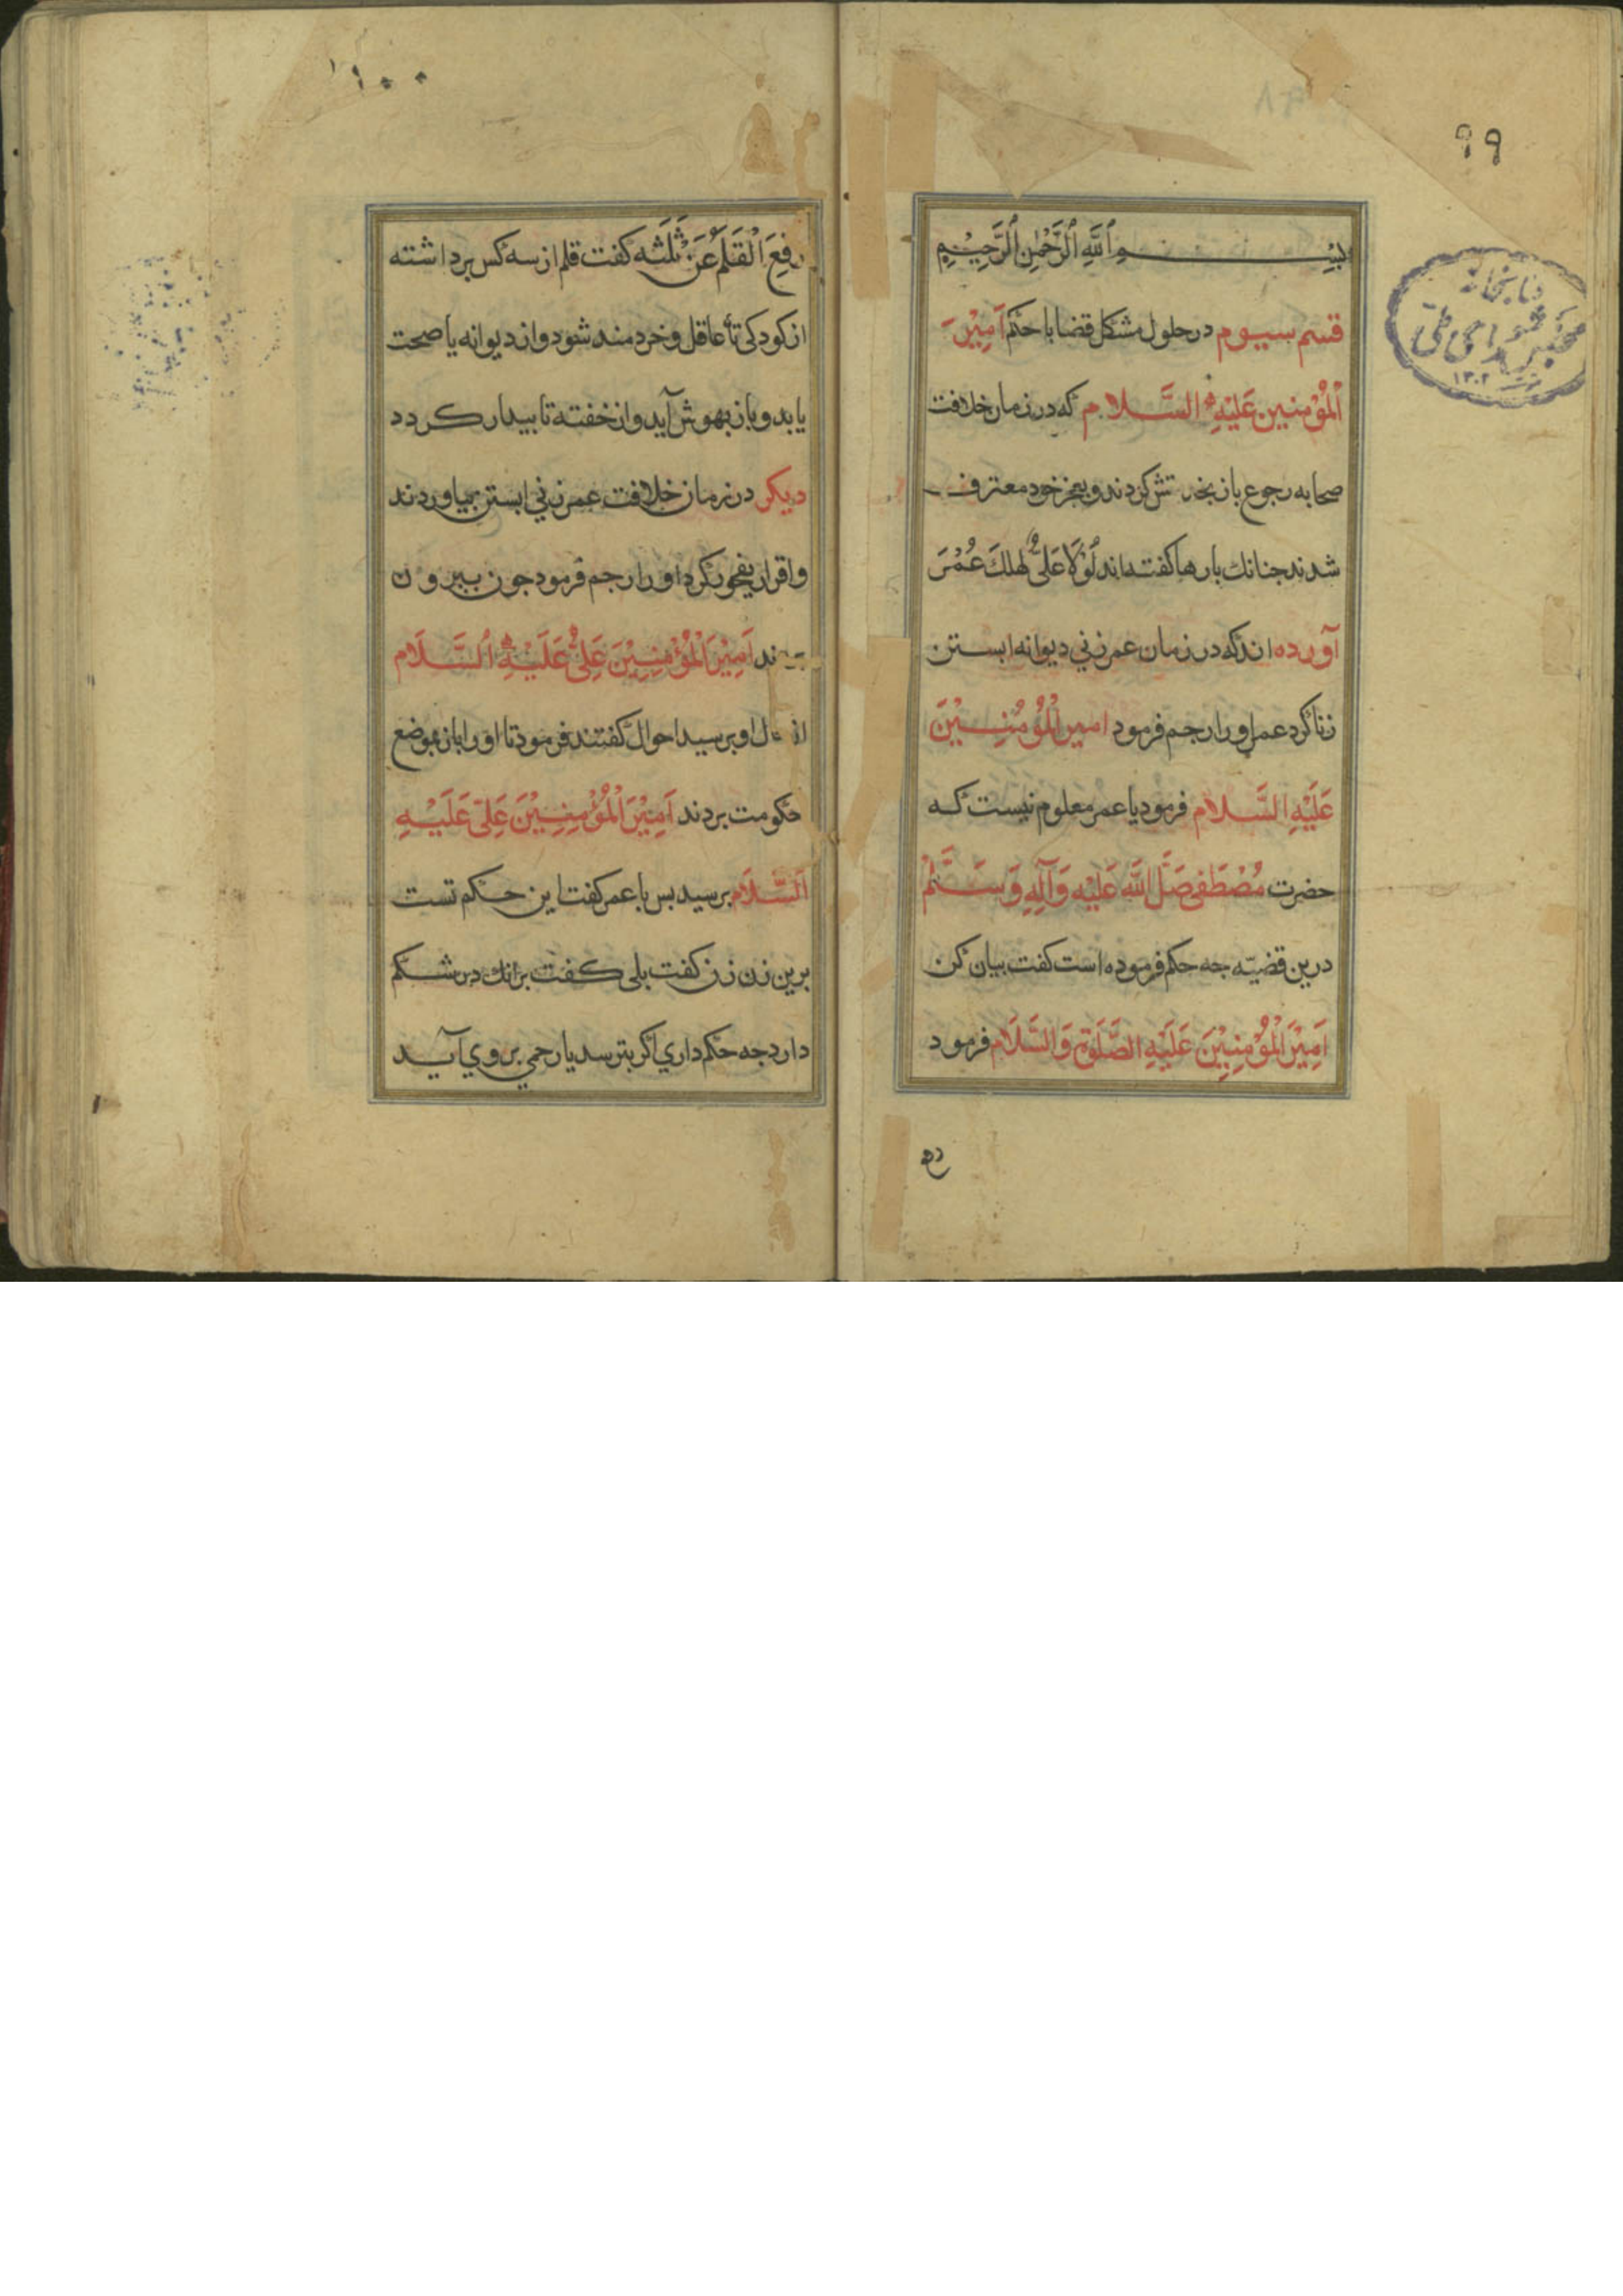 ۹۹
بسم ٱللَّهِ ٱلرَّحْمٰنِ ٱلرَّحِيْمِ
قسم سیوم در حلول مشکل قضا با حکم اَمِیْنَ
اَلْمُؤْمِنین عَلَیْهِ السَّلام که در زمان خلافت
صحابه رجوع باز کردند و بعجز خود معترف
شدند جنانك بارها کفته‌اند لَوْلَا عَلِیٌّ لهلكَ عُمَرَ
آورده اند که در زمان عمر زنی دیوانه ابستن
زنا کرد عمر او را رجم فرمود امیر الْمُؤْمِنِیْنَ
عَلَیْهِ السَّلام فرمود یا عمر معلوم نیست که
حضرت مُصْطَفی صَلَّ اللّٰهِ عَلَیْهِ وَآلِهِ وَسَلَّمْ
درین قضیّه جه حکم فرموده است کفت بیان کن
اَمِیْرَالْمُؤْمِنِیْنَ عَلَیْهِ الصَّلَوةِ وَالسَّلَام فرمود
۱۰۰
رفِعَ الْقَلَمُ عَنْ ثَلٰثَه کفت قلم از سه کس برداشته
از کودکی تا عاقل و خردمند شود و از دیوانه یا صحت
یابد و باز بهوش آید و از خفته تا بیدار کردد
دیکر در زمان خلافت عمر زنی ابستن بیاوردند
واقرار بفجور کرد او را رجم فرمود جون بیرون
ند اَمِیْرَالْمُؤْمِنِیْنَ عَلِیٌّ عَلَیْهِ ٱلسَّلَام
از او برسید احوال کفتند فرمود تا او را باز بموضع
حکومت بردند اَمِیْرَالْمُؤْمِنِیْنَ عَلِیّ عَلَیْهِ
اَلسَّلَام برسید بس با عمر کفت این حکم تست
برین زن زن کفت بلی کفت برانك در شکم
دارد جه حکم داری اکر بترسد یا رحمی بر وی آید